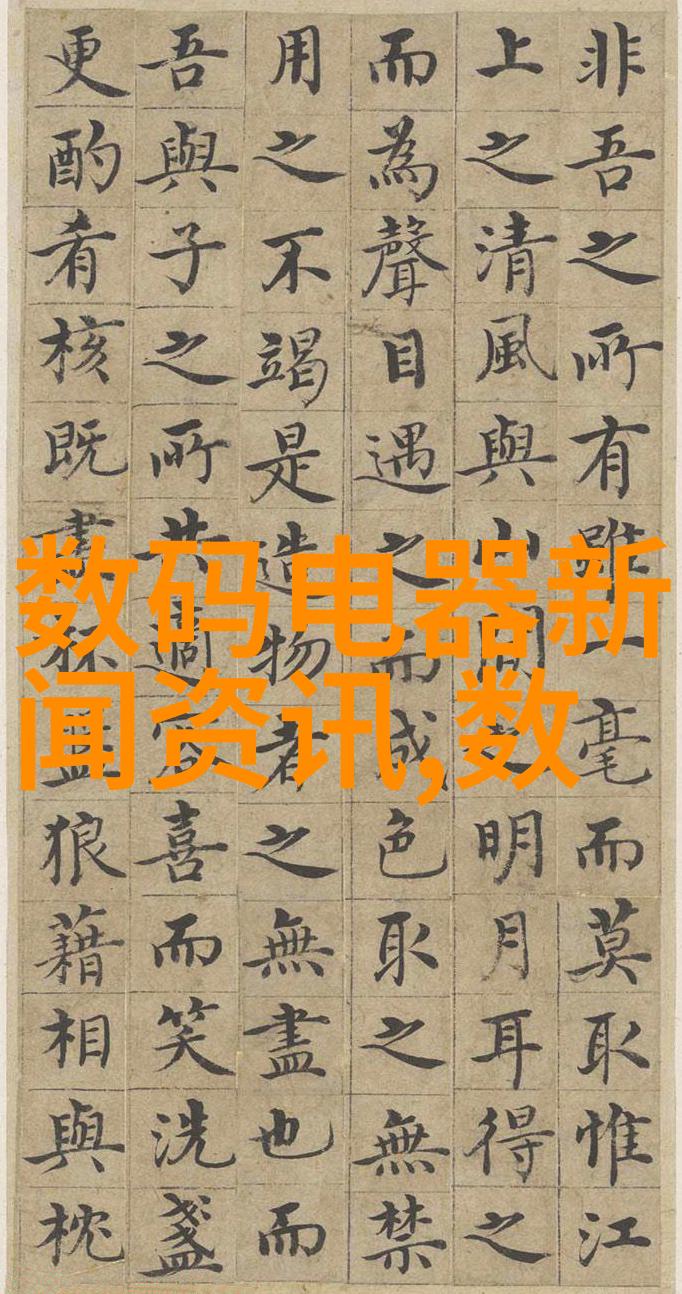 非吾之所有雖一毫而莫取惟江
上之清風與山間之明月耳得之
而為聲目遇之而成色取之無禁
用之不竭是造物者之無盡也而
吾與子之所共適客喜而笑洗盞
更酌肴核既盡杯盤狼藉相與枕
数码电器新
闻资讯,数